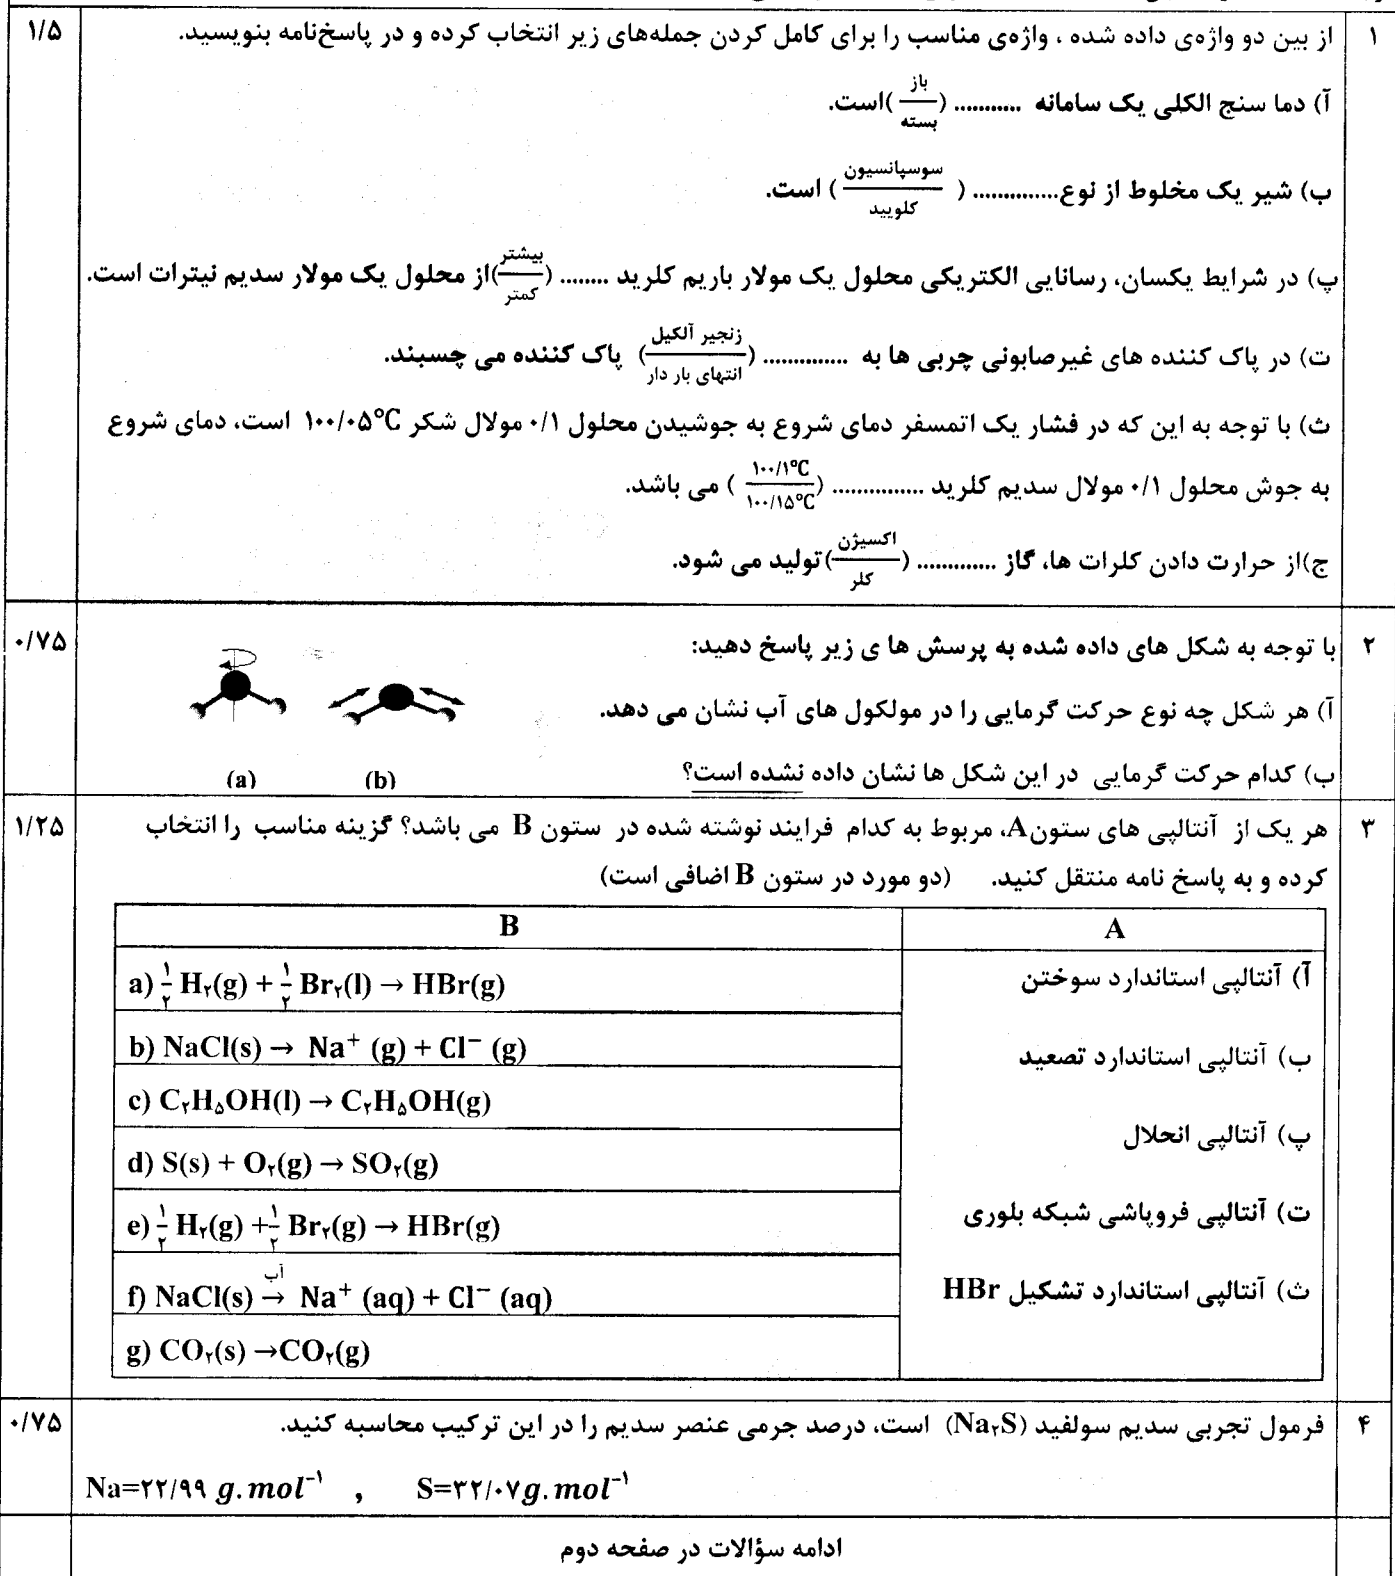 ۱ از بین دو واژه‌ی داده شده ، واژه‌ی مناسب را برای کامل کردن جمله‌های زیر انتخاب کرده و در پاسخ‌نامه بنویسید. ۱/۵
آ) دما سنج الکلی یک سامانه ........... (باز/بسته) است.
ب) شیر یک مخلوط از نوع.............. ( سوسپانسیون/کلویید ) است.
پ) در شرایط یکسان، رسانایی الکتریکی محلول یک مولار باریم کلرید ........ (بیشتر/کمتر)از محلول یک مولار سدیم نیترات است.
ت) در پاک کننده های غیرصابونی چربی ها به .............. (زنجیر آلکیل/انتهای بار دار) پاک کننده می چسبند.
ث) با توجه به این که در فشار یک اتمسفر دمای شروع به جوشیدن محلول ۰/۱ مولال شکر ۱۰۰/۰۵°C است، دمای شروع
به جوش محلول ۰/۱ مولال سدیم کلرید ............... (۱۰۰/۱°C/۱۰۰/۱۵°C ) می باشد.
ج)از حرارت دادن کلرات ها، گاز ............. (اکسیژن/کلر)تولید می شود.
۲ با توجه به شکل های داده شده به پرسش ها ی زیر پاسخ دهید: ۰/۷۵
آ) هر شکل چه نوع حرکت گرمایی را در مولکول های آب نشان می دهد.
ب) کدام حرکت گرمایی در این شکل ها نشان داده نشده است؟
(a) (b)
۳ هر یک از آنتالپی های ستونA، مربوط به کدام فرایند نوشته شده در ستون B می باشد؟ گزینه مناسب را انتخاب ۱/۲۵
کرده و به پاسخ نامه منتقل کنید. (دو مورد در ستون B اضافی است)
A
آ) آنتالپی استاندارد سوختن
ب) آنتالپی استاندارد تصعید
پ) آنتالپی انحلال
ت) آنتالپی فروپاشی شبکه بلوری
ث) آنتالپی استاندارد تشکیل HBr
B
a) ۱/۲ H₂(g) + ۱/۲ Br₂(l) → HBr(g)
b) NaCl(s) → Na⁺ (g) + Cl⁻ (g)
c) C₂H₅OH(l) → C₂H₅OH(g)
d) S(s) + O₂(g) → SO₂(g)
e) ۱/۲ H₂(g) + ۱/۲ Br₂(g) → HBr(g)
f) NaCl(s) آب→ Na⁺ (aq) + Cl⁻ (aq)
g) CO₂(s) →CO₂(g)
۴ فرمول تجربی سدیم سولفید (Na₂S) است، درصد جرمی عنصر سدیم را در این ترکیب محاسبه کنید. ۰/۷۵
Na=۲۲/۹۹ g.mol⁻¹ , S=۳۲/۰۷g.mol⁻¹
ادامه سؤالات در صفحه دوم